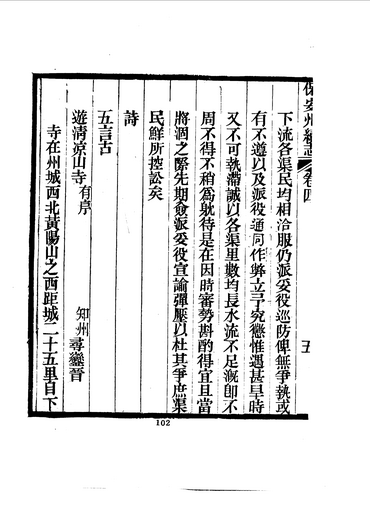 保安州續志 卷四 五
下流各渠民均相洽服仍派妥役巡防俾無爭執或
有不遵以及派役通同作弊立予究懲惟遇甚旱時
又不可執滯誠以各渠里數均長水流不足溉卽不
周不得不稍爲躭待是在因時審勢斟酌得宜且當
將涸之際先期僉派妥役宣諭彈壓以杜其爭庶渠
民鮮所控訟矣
詩
五言古
遊清涼山寺有序 知州尋鑾晉
寺在州城西北黃陽山之西距城二十五里自下
102